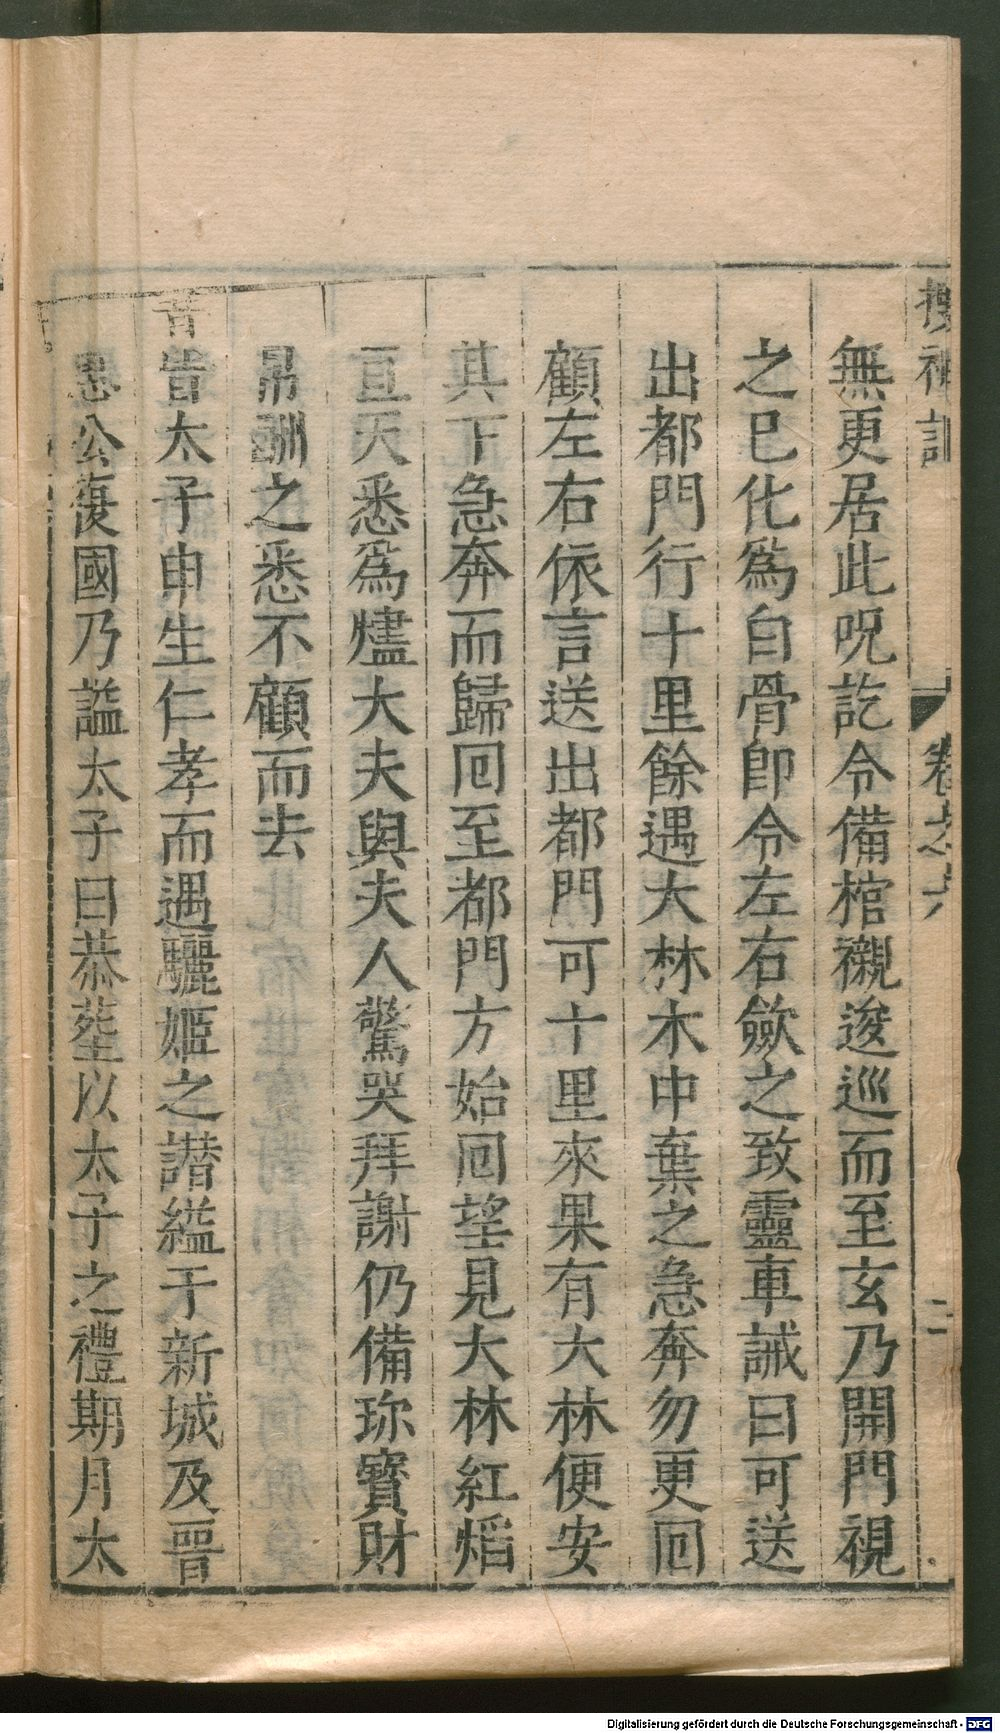 搜神記 卷之六 二
無更居此呪訖令備棺襯逡巡而至玄乃開門視
之已化爲白骨卽令左右歛之致靈車誡曰可送
出都門行十里餘遇大林木中棄之急奔勿更回
顧左右依言送出都門可十里來果有大林便安
其下急奔而歸回至都門方始回望見大林紅熖
亘天悉爲燼大夫與夫人驚哭拜謝仍備珎寳財
帛酬之悉不顧而去
晋太子申生仁孝而遇驪姬之譛縊于新城及晋
惠公復國乃謚太子曰恭塟以太子之禮期月太
Digitalisierung gefördert durch die Deutsche Forschungsgemeinschaft - DFG